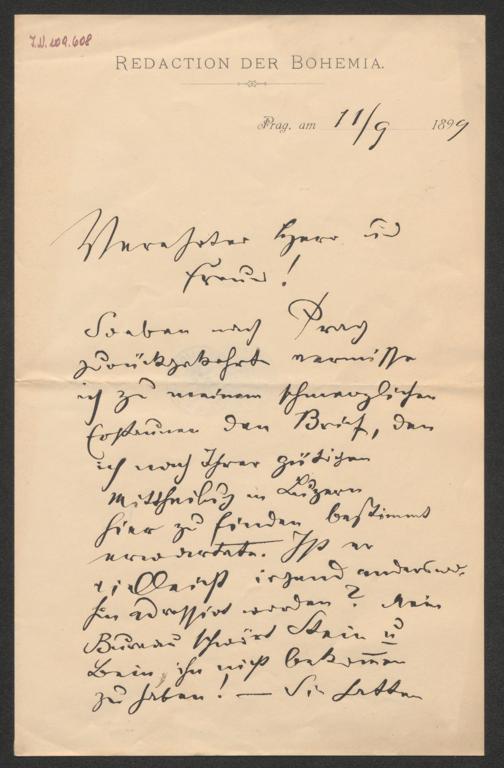 I.N. 109.608
REDACTION DER BOHEMIA.
Prag, am 11/9 1899
Verehrter Herr und
Freund!
Soeben nach Prag
zurückgekehrt vermisse
ich zu meinem schmerzlichen
Erstaunen den Brief, den
ich nach Ihrer gütigen
Mittheilung in Luzern
hier zu finden bestimmt
erwartete. Ist er
vielleicht irgend anderswo-
hin adressirt worden? Mein
Bureau schwört Stein u
Bein, ihn nicht bekommen
zu haben! — Sie hatten